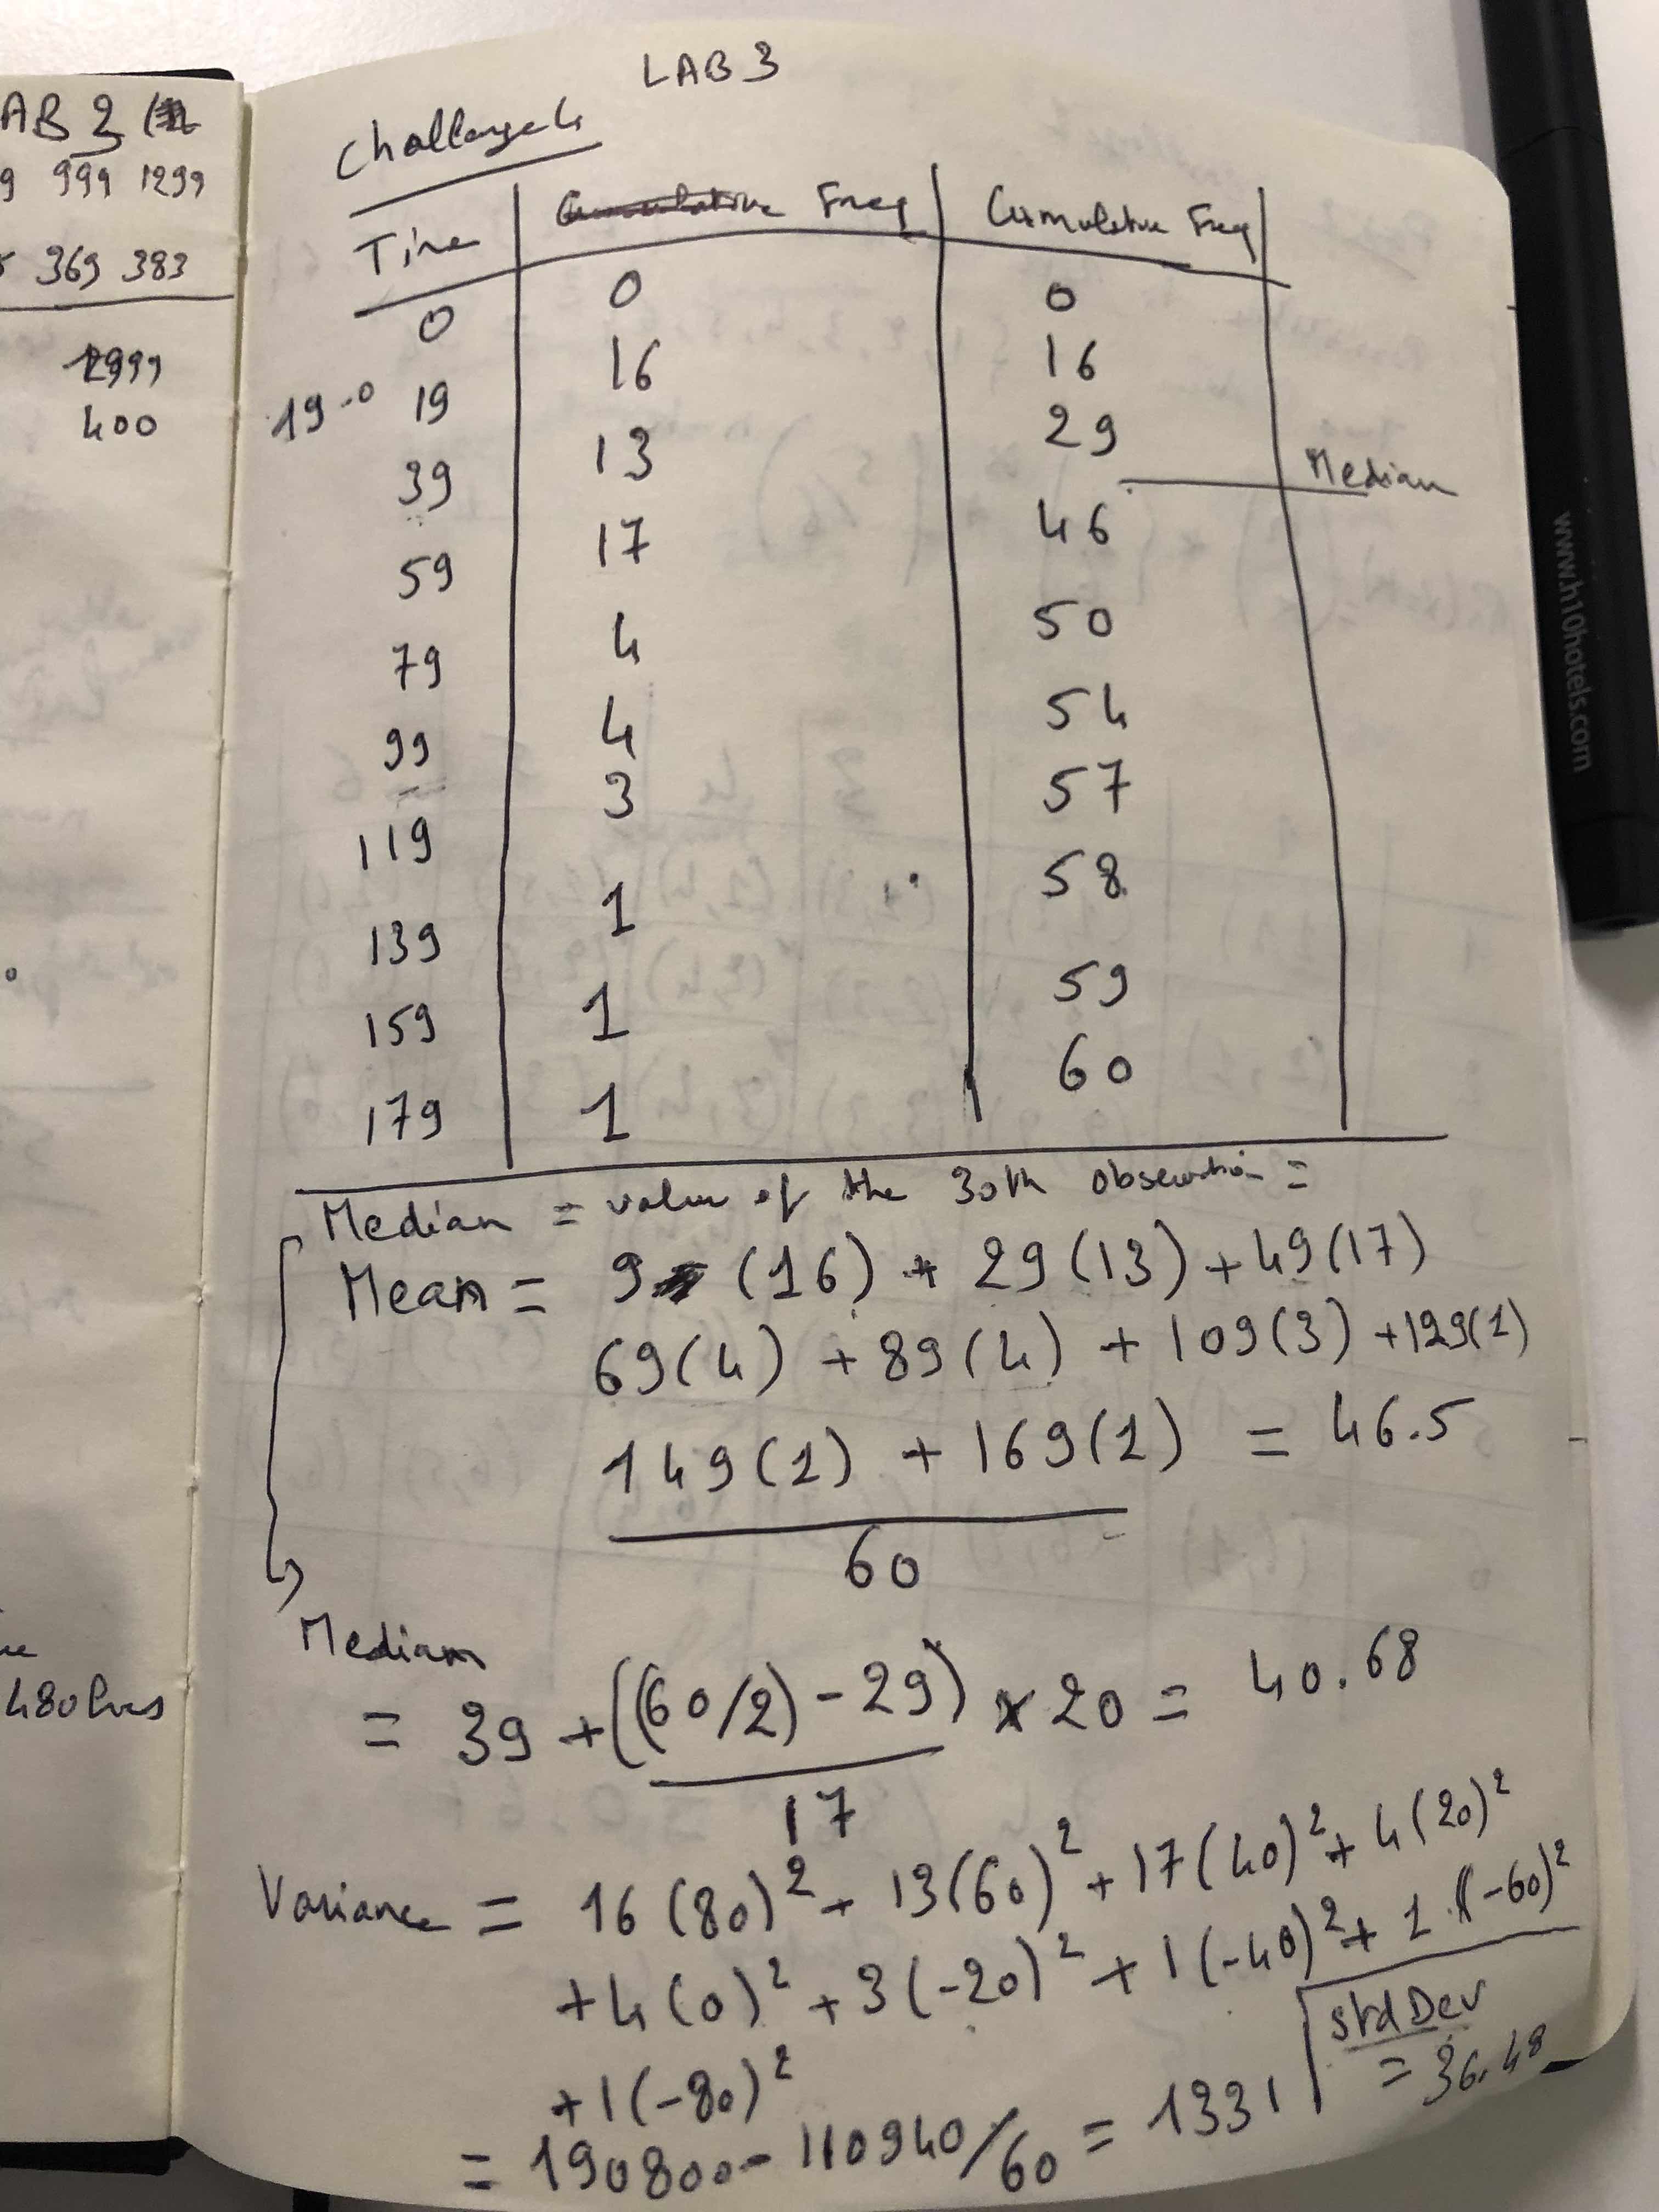 LAB 3
AB 2
9 999 1299
369 383
1999
400
480
Challenge 4
Time Cumulative Freq Cumulative Freq
0 0 0
19-0 19 16 16
39 13 29
Median
59 17 46
79 4 50
99 4 54
119 3 57
139 1 58
159 1 59
179 1 60
Median = value of the 30th observation =
Mean = 9 (16) + 29(13) + 49(17)
69(4) + 89(4) + 109(3) + 129(1)
149(1) + 169(1) = 46.5
60
Median
= 39 + ((60/2) - 29) x 20 = 40.68
17
Variance = 16(80)² + 13(60)² + 17(40)² + 4(20)²
+ 4(0)² + 3(-20)² + 1(-40)² + 1(-60)²
+ 1(-80)²
= 190800 - 110940/60 = 1331
Std Dev
= 36.48
www.h10hotels.com